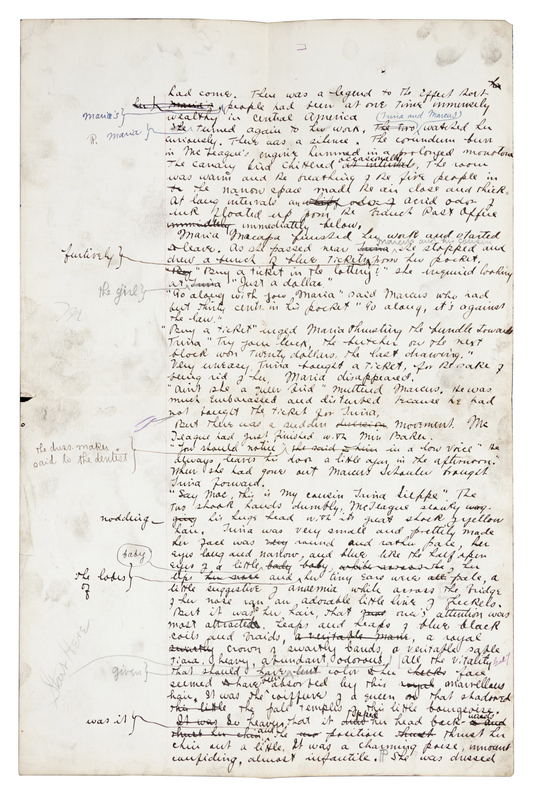 had come. There was a legend to the effect that
Maria's} people had been at one time immensely
wealthy in Central America
P. Maria} She turned again to her work. The two (Trina and Marcus) watched her
curiously. There was a silence. The corundum burr
in McTeague's engine hummed in a prolonged monotone
The canary bird chittered occasionally at intervals. The room
was warm and the breathing of the five people in
the narrow space made the air close and thick.
At long intervals an acrid odor of
ink floated up from the branch Post Office
immediately immediately below.
Maria Macapa finished her work and started
to leave. As she passed near she stopped and
furtively} drew a bunch of blue tickets from her pocket.
"Buy a ticket in the lottery?" she inquired looking
the girl} at Trina "Just a dollar."
"Go along with you, Maria" said Marcus who had
but thirty cents in his pocket "Go along, it's against
the law."
"Buy a ticket" urged Maria thrusting the bundle towards
Trina "Try your luck, the butcher on the next
block won twenty dollars the last drawing."
Very uneasy, Trina bought a ticket, for the sake of
being rid of her. Maria disappeared.
"Ain't she a queer bird" muttered Marcus. He was
much embarrassed and disturbed because he had
not bought the ticket for Trina.
But there was a sudden movement. Mc
Teague had just finished with Mrs Baker.
the dress maker said to the dentist} "You should notice, she said in a low voice" he
always leaves his door a little ajar in the afternoon."
When she had gone out Marcus Schouler brought
Trina forward.
"Say Mac, this is my cousin Trina Sieppe". The
two shook hands dumbly, McTeague slowly
nodding his huge head with its great shock of yellow
hair. Trina was very small and prettily made
her face was round and rather pale, her
eyes long and narrow, and blue like the half open
baby} eyes of a little baby, the her
the lobes of lips and her tiny ears were pale, a
little suggestive of anaemia while across the bridge
of her nose ran an adorable little line of freckels.
But it was her hair, that one's attention was
most attracted. Heaps and heaps of blue black
coils and braids, a royal
swarthy crown of swarthy bands, a veritable sable
tiara, heavy, abundant odorous. All the vitality
given} that should have color to her face
seemed to have been absorbed by this marvellous
hair. It was the coiffure of a queen that shadowed
the pale temples of this little bourgeoise.
was it} So heavy that it tipped her head back-
and the position thrust her
chin out a little. It was a charming poise, innocent
confiding, almost infantile. She was dressed